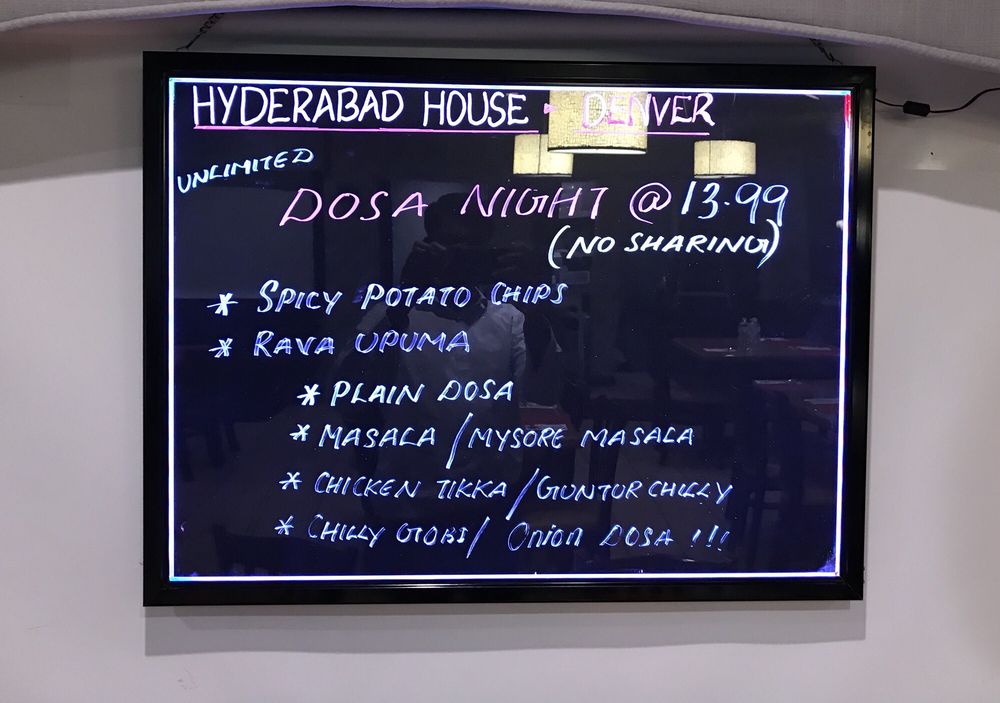 HYDERABAD HOUSE - DENVER
UNLIMITED
DOSA NIGHT @ 13.99
(NO SHARING)
* SPICY POTATO CHIPS
* RAVA UPUMA
* PLAIN DOSA
* MASALA / MYSORE MASALA
* CHICKEN TIKKA / GUNTUR CHILLY
* CHILLY GOBI / Onion DOSA !!!